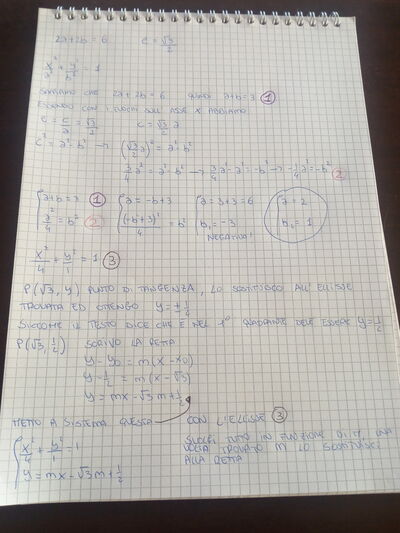 2a+2b = 6   e = √3/2
x²/a² + y²/b² = 1
SAPPIAMO CHE 2a+2b=6 QUINDI a+b=3 ①
ESSENDO CON I FUOCHI SULL'ASSE X ABBIAMO
e = c/a = √3/2   c = √3/2 a
c² = a²-b² → (√3/2 a)² = a²-b²
3/4 a² = a²-b² → 3/4 a² - a² = -b² → -1/4 a² = -b² ②
{ a+b=3 ①   { a = -b+3   { a = 3+3 = 6   { a = 2
{ a²/4 = b² ②   { (-b+3)²/4 = b²   { b₁ = -3   { b₂ = 1
NEGATIVA!
x²/4 + y²/1 = 1 ③
P(√3, y) PUNTO DI TANGENZA, LO SOSTITUISCO ALL'ELLISSE
TROVATA ED OTTENGO y = ± 1/4
SICCOME IL TESTO DICE CHE È NEL 1° QUADRANTE DEVE ESSERE y = 1/2
P(√3, 1/2)   SCRIVO LA RETTA
y - y₀ = m(x - x₀)
y - 1/2 = m(x - √3)
y = mx - √3 m + 1/2
METTO A SISTEMA QUESTA CON L'ELLISSE ③
{ x²/4 + y²/1 = 1   SVOLGI TUTTO IN FUNZIONE DI m, UNA
{ y = mx - √3 m + 1/2   VOLTA TROVATO m LO SOSTITUISCI
ALLA RETTA